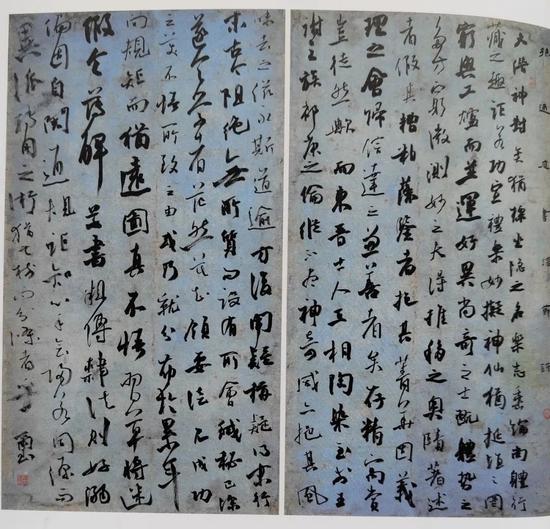 夫潛神對弈猶標坐隱之名樂志垂綸尚體行
藏之趣詎若功宣禮樂妙擬神仙猶挺埴之罔
窮與工爐而並運好異尚奇之士玩體勢之
多方窮微測妙之夫得推移之奧賾著述
者假其糟粕藻鑒者挹其菁華固義
理之會歸信達之兼善者矣存精寓賞
豈徒然歟而東晉士人互相陶染至於王
謝之族郗庾之倫縱不盡神奇咸亦挹其風
味去之滋永斯道逾方復聞疑稱疑得末行
末古今阻絕無所質問設有所會緘秘已深
遂令學者茫然莫知領要徒見成功
之美不悟所致之由或乃就分布於累年
向規矩而猶遠圖真不悟習草將迷
假令薄解草書粗傳隸法則好溺
偏固自閡通規詎知心手會歸若同源而
異派轉用之術猶共樹而分條者乎